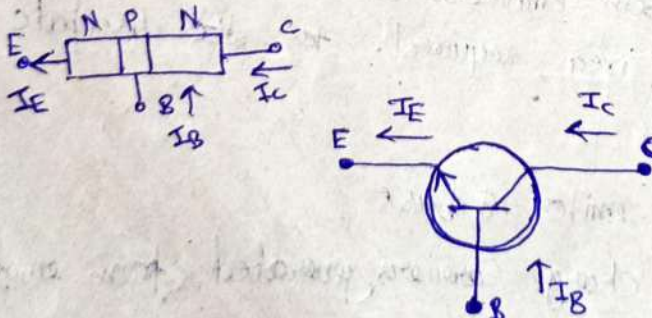 N P N
E C
I_E B I_C
I_B
I_E I_C
E C
I_B
B